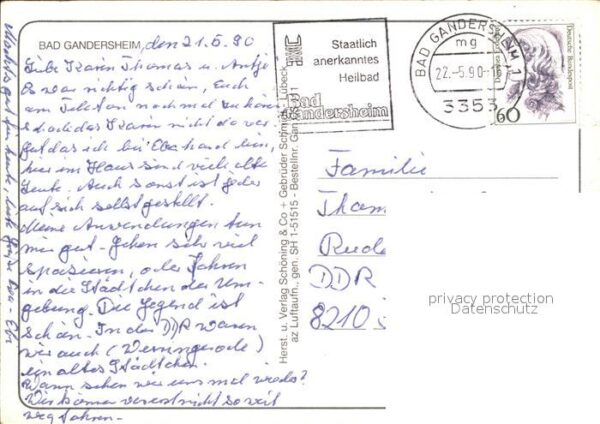 BAD GANDERSHEIM, den 21.5.90
Liebe Karin Thomas u. Antje
Es war richtig schön, Euch
am Telefon noch mal zu hören
schade das Karin nicht da war
gut das ich bei Eberhard bin,
hier im Haus sind viele alte
Leute. Auch sonst ist jeder
auf sich selbst gestellt.
Meine Anwendungen tun
mir gut. Gehen sehr viel
spazieren, oder fahren
in die Städtchen der Um-
gebung. Die Gegend ist
schön. In der DDR waren
wir auch (Wernigerode)
ein altes Städtchen.
Wann sehen wir uns mal wieder?
Wir können vorerst nicht so weit
weg fahren.
gut für heute, liebe Grüße
Herst. u. Verlag Schöning & Co + Gebrüder Schmidt, Lübeck
az Luftaufn., gen. SH 1-51515 - Bestellnr. Gan
Staatlich
anerkanntes
Heilbad
Bad
Gandersheim
BAD GANDERSHEIM 1
mg
22.-5.90-1
3353
Deutsche Bundespost
60
Familie
Thom
Rude
DDR
8210
privacy protection
Datenschutz